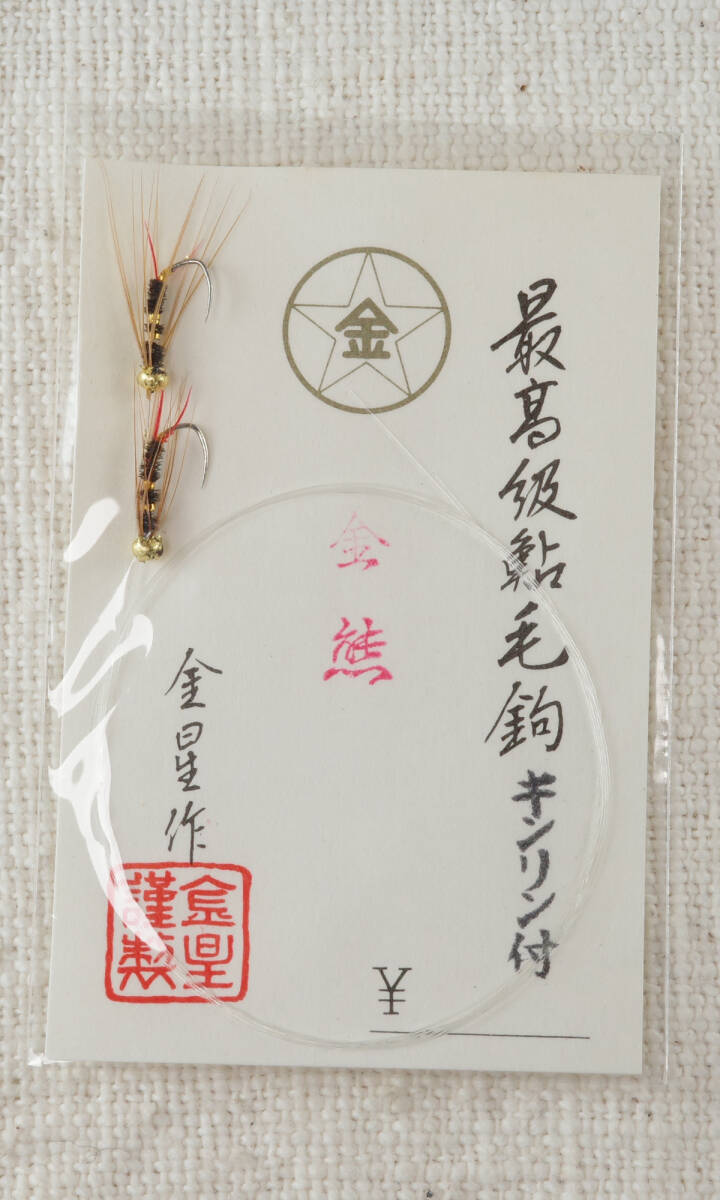 最高級鮎毛鉤キンリン付
金
金熊
¥
金星作
金星
謹製